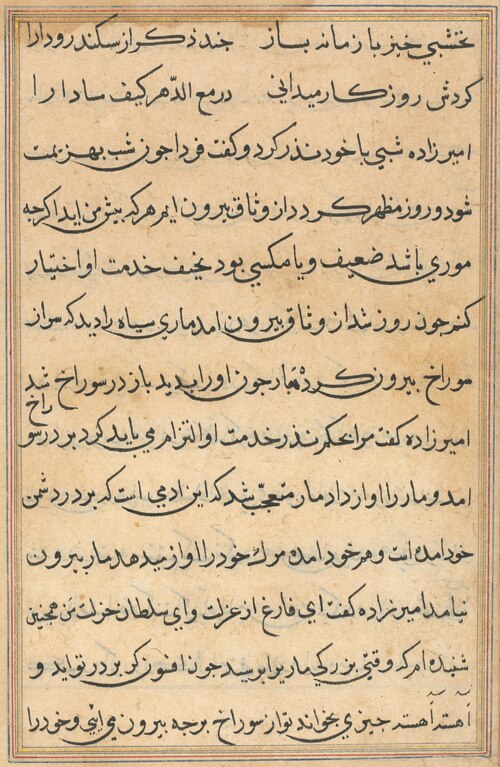 نخشبي خيز با زمانه بساز جند ذكر از سكندر و دارا
كردش روزكار ميداني درمع الدّهر كيف سادارا
امير زاده شبي با خود نذر كرد و كفت فردا جون شب بهزيمت
شود و روز مظهر كردد از وثاق بيرون ايم هركه بيش من ايد اكرجه
موري باشد ضعيف و يا مكسي بود نحيف خدمت او اختيار
كنم جون روز شد از وثاق بيرون امد ماري سياه را ديد كه سر از
سوراخ بيرون كرده مار جون او را بديد باز در سوراخ شد
امير زاده كفت مرا بحكم نذر خدمت او التزام مي بايد كرد بر در سوراخ
امد و مار را اواز داد مار متعجّب شد كه اين ادمي است كه بر در دشمن
خود امده است و هم خود امده مرك خود را اواز ميدهد مار بيرون
نيامد امير زاده كفت اي فارغ از عزلت و اي سلطان خزلت من همجنين
شنيده ام كه وقتي بزركي مار برابر سيد جون افسون كر بر در تو ايد و
آهسته آهسته جيزي بخواند تو از سوراخ برجه بيرون مي ائي و خود را